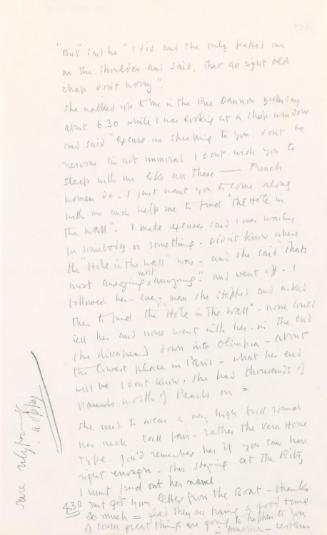 "But" said he "I did and she only patted me
on the shoulder and said, that's all right old
chap don't worry"
She walked up to me in the Rue Cambon yesterday
about 6.30 while I was looking at a shop window
and said "excuse me speaking to you, don't be
nervous I'm not immoral I don't wish you to
sleep with me like all these — French
women do. I just want you to come along
with me and help me to find "the Hole in
the Wall". I made excuses said I was waiting
for somebody or something. didn't know where
the "Hole in the Wall" was - and she said "thats
most annoying & annoying." and went off. I
followed her - every man she stopped and asked
them to find the "Hole in the Wall" - none could
tell her and none went with her - in the end
she disappeared down into Olimpia - about
the lowest place in Paris - what her end
will be I don't know, she had thousands of
pounds worth of Pearls on =
She used to wear a very high frill round
her neck - rather the Vera Hone
type. You'd remember her if you saw her
right enough - She's staying at the Ritz
I must find out her name
430 Just got your letter from the Boat - thanks
so much = glad they are having a good time
of course great things are going to happen to you
in America - certain